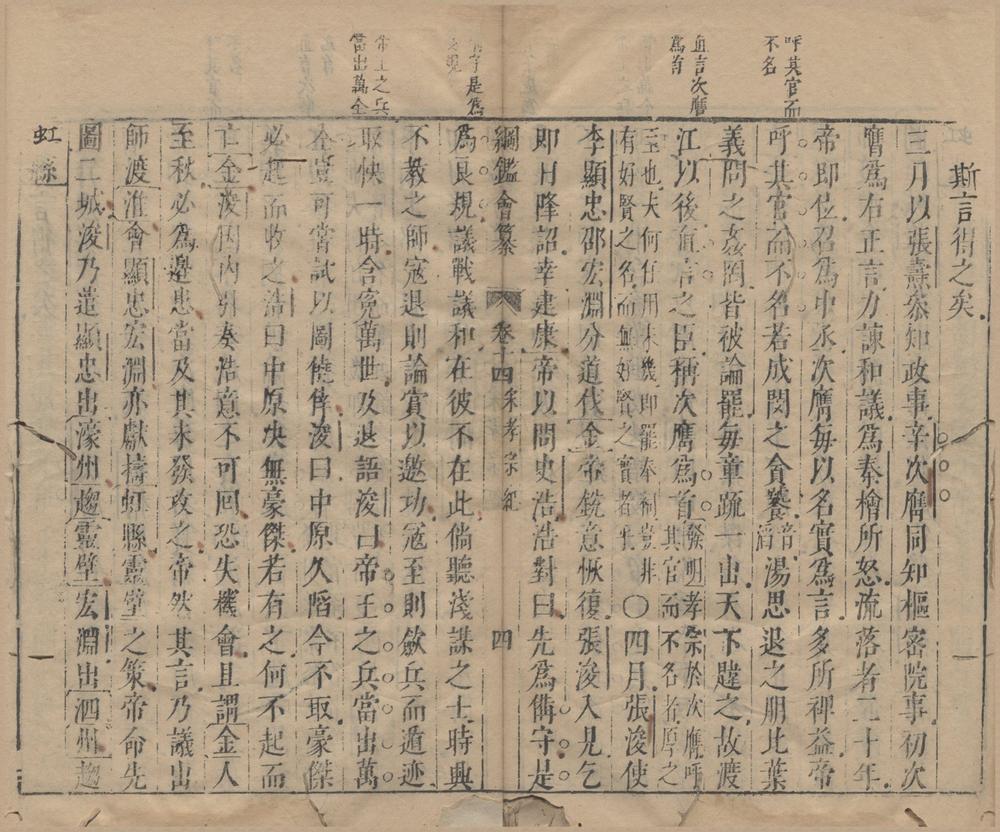 斯言得之矣
三月以張燾參知政事辛次膺同知樞密院事初次
膺爲右正言力諫和議爲秦檜所怒流落者二十年
帝即位召爲中丞次膺每以名實爲言多所裨益帝
呼其官而不名若成閔之貪饕湯思退之朋比葉
義問之姦罔皆被論罷每章疏一出天下韙之故渡
江以後直言之臣稱次膺爲首發明孝宗於次膺呼其官而不名者厚之
至也夫何任用未幾即罷奉祠豈非有好賢之名而無好賢之實者乎〇四月張浚使
李顯忠邵宏淵分道伐金帝銳意恢復張浚入見乞
即日降詔幸建康帝以問史浩浩對曰先爲備守是
綱鑑會纂 卷十四 宋孝宗紀 四
爲良規議戰議和在彼不在此倘聽淺謀之士時興
不教之師寇退則論賞以邀功寇至則斂兵而遁迹
取快一時含寃萬世及退語浚曰帝王之兵當出萬
全豈可嘗試以圖僥倖浚曰中原久陷今不取豪傑
必起而收之浩曰中原決無豪傑若有之何不起而
亡金浚因內引奏浩意不可回恐失機會且謂金人
至秋必爲邊患當及其未發攻之帝然其言乃議出
師渡淮會顯忠宏淵亦獻擣虹縣靈壁之策帝命先
圖二城浚乃遣顯忠出濠州趨靈壁宏淵出泗州趨
虹縣
呼其官而
不名
直言次膺
爲首
帝王之兵
當出萬全